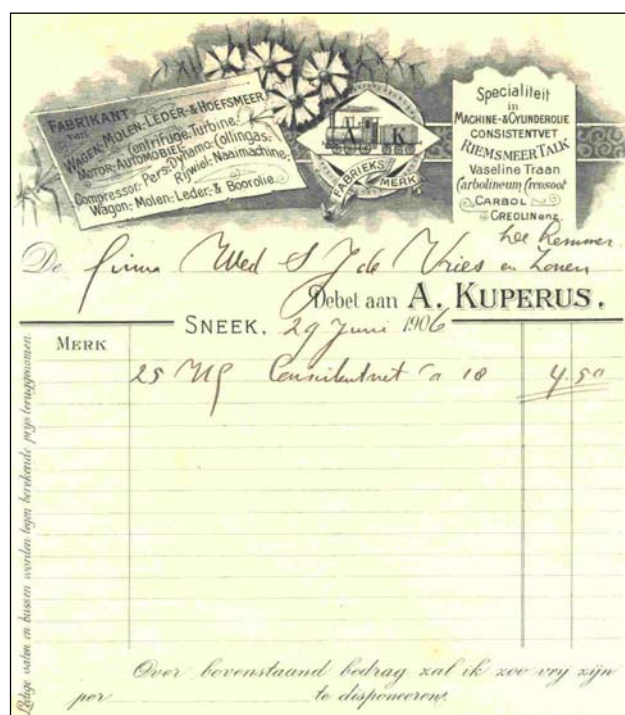 FABRIKANT
van
WAGEN-MOLEN-LEDER-& HOEFSMEER
Centrifuge-Turbine-
MOTOR-AUTOMOBIEL-
Compressor-Pers-Dynamo-Collingas-
Rijwiel-Naaimachine-
Wagon-Molen-Leder-& Boorolie.
A K
FABRIEKS
MERK
Specialiteit
in
MACHINE-& CYLINDEROLIE
CONSISTENTVET
RIEMSMEER TALK
Vaseline Traan
Carbolineum Creosoot
CARBOL
CREOLIN enz.
De firma Wed S J de Vries en Zonen
Lemmer
Debet aan A. KUPERUS.
SNEEK, 29 Juni 1906
MERK
25 Consistentvet a 18 4.50
Ledige vaten en bussen worden tegen berekende prijs teruggenomen.
Over bovenstaand bedrag zal ik zoo vrij zijn
per te disponeeren.